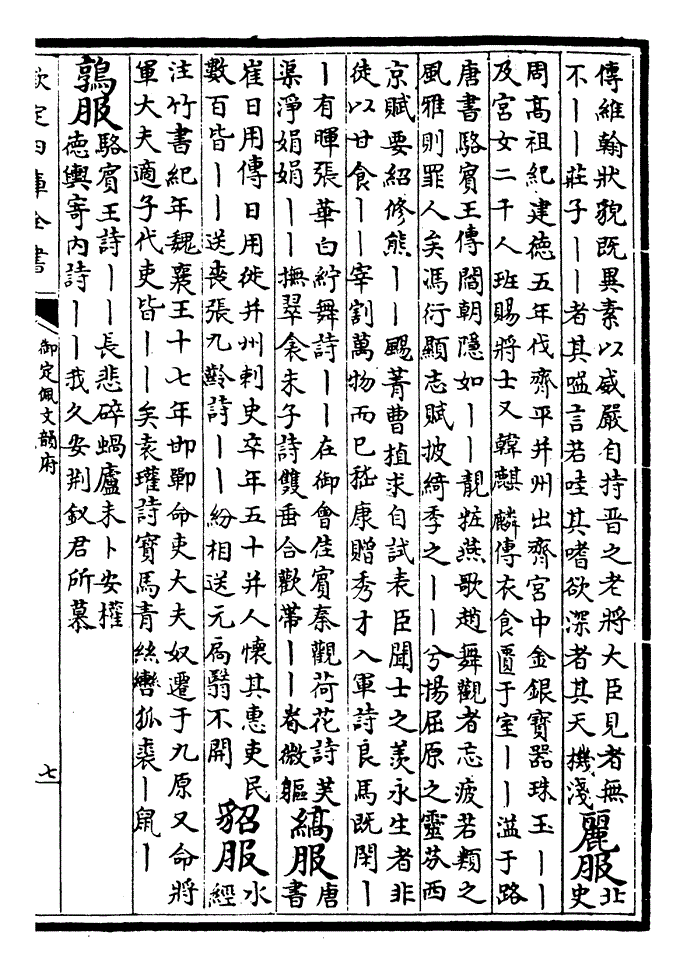 傳維翰狀貌既異素以威嚴自持晋之老將大臣見者無
不——莊子——者其嗌言若哇其嗜欲深者其天機淺
麗服
北
史
周高祖紀建德五年伐齊平并州出齊宮中金銀寶器珠玉——
及宮女二千人班賜將士又韓麒麟傳衣食匱于室——溢于路
唐書駱賓王傳閻朝隱如——靚粧燕歌趙舞觀者忘疲若類之
風雅則罪人矣馮衍顯志賦披綺季之——兮揚屈原之靈芬西
京賦要紹修態——颺菁曹植求自試表臣聞士之羨永生者非
徒以甘食——宰割萬物而已嵇康贈秀才入軍詩良馬既閑—
—有暉張華白紵舞詩——在御會佳賓秦觀荷花詩芙
渠淨娟娟——撫翠衾朱子詩雙垂合歡帶——眷微軀
縞服
唐
書
崔日用傳日用徙并州刺史卒年五十并人懷其惠吏民
數百皆——送喪張九齡詩——紛相送元扃翳不開
貂服
水
經
注竹書紀年魏襄王十七年邯鄲命吏大夫奴遷于九原又命將
軍大夫適子代吏皆——矣袁瓘詩寶馬青絲轡狐裘—鼠—
鶉服
駱賓王詩——長悲碎蝸廬未卜安權
德輿寄内詩——我久安荆釵君所慕
欽定四庫全書
御定佩文韻府
七